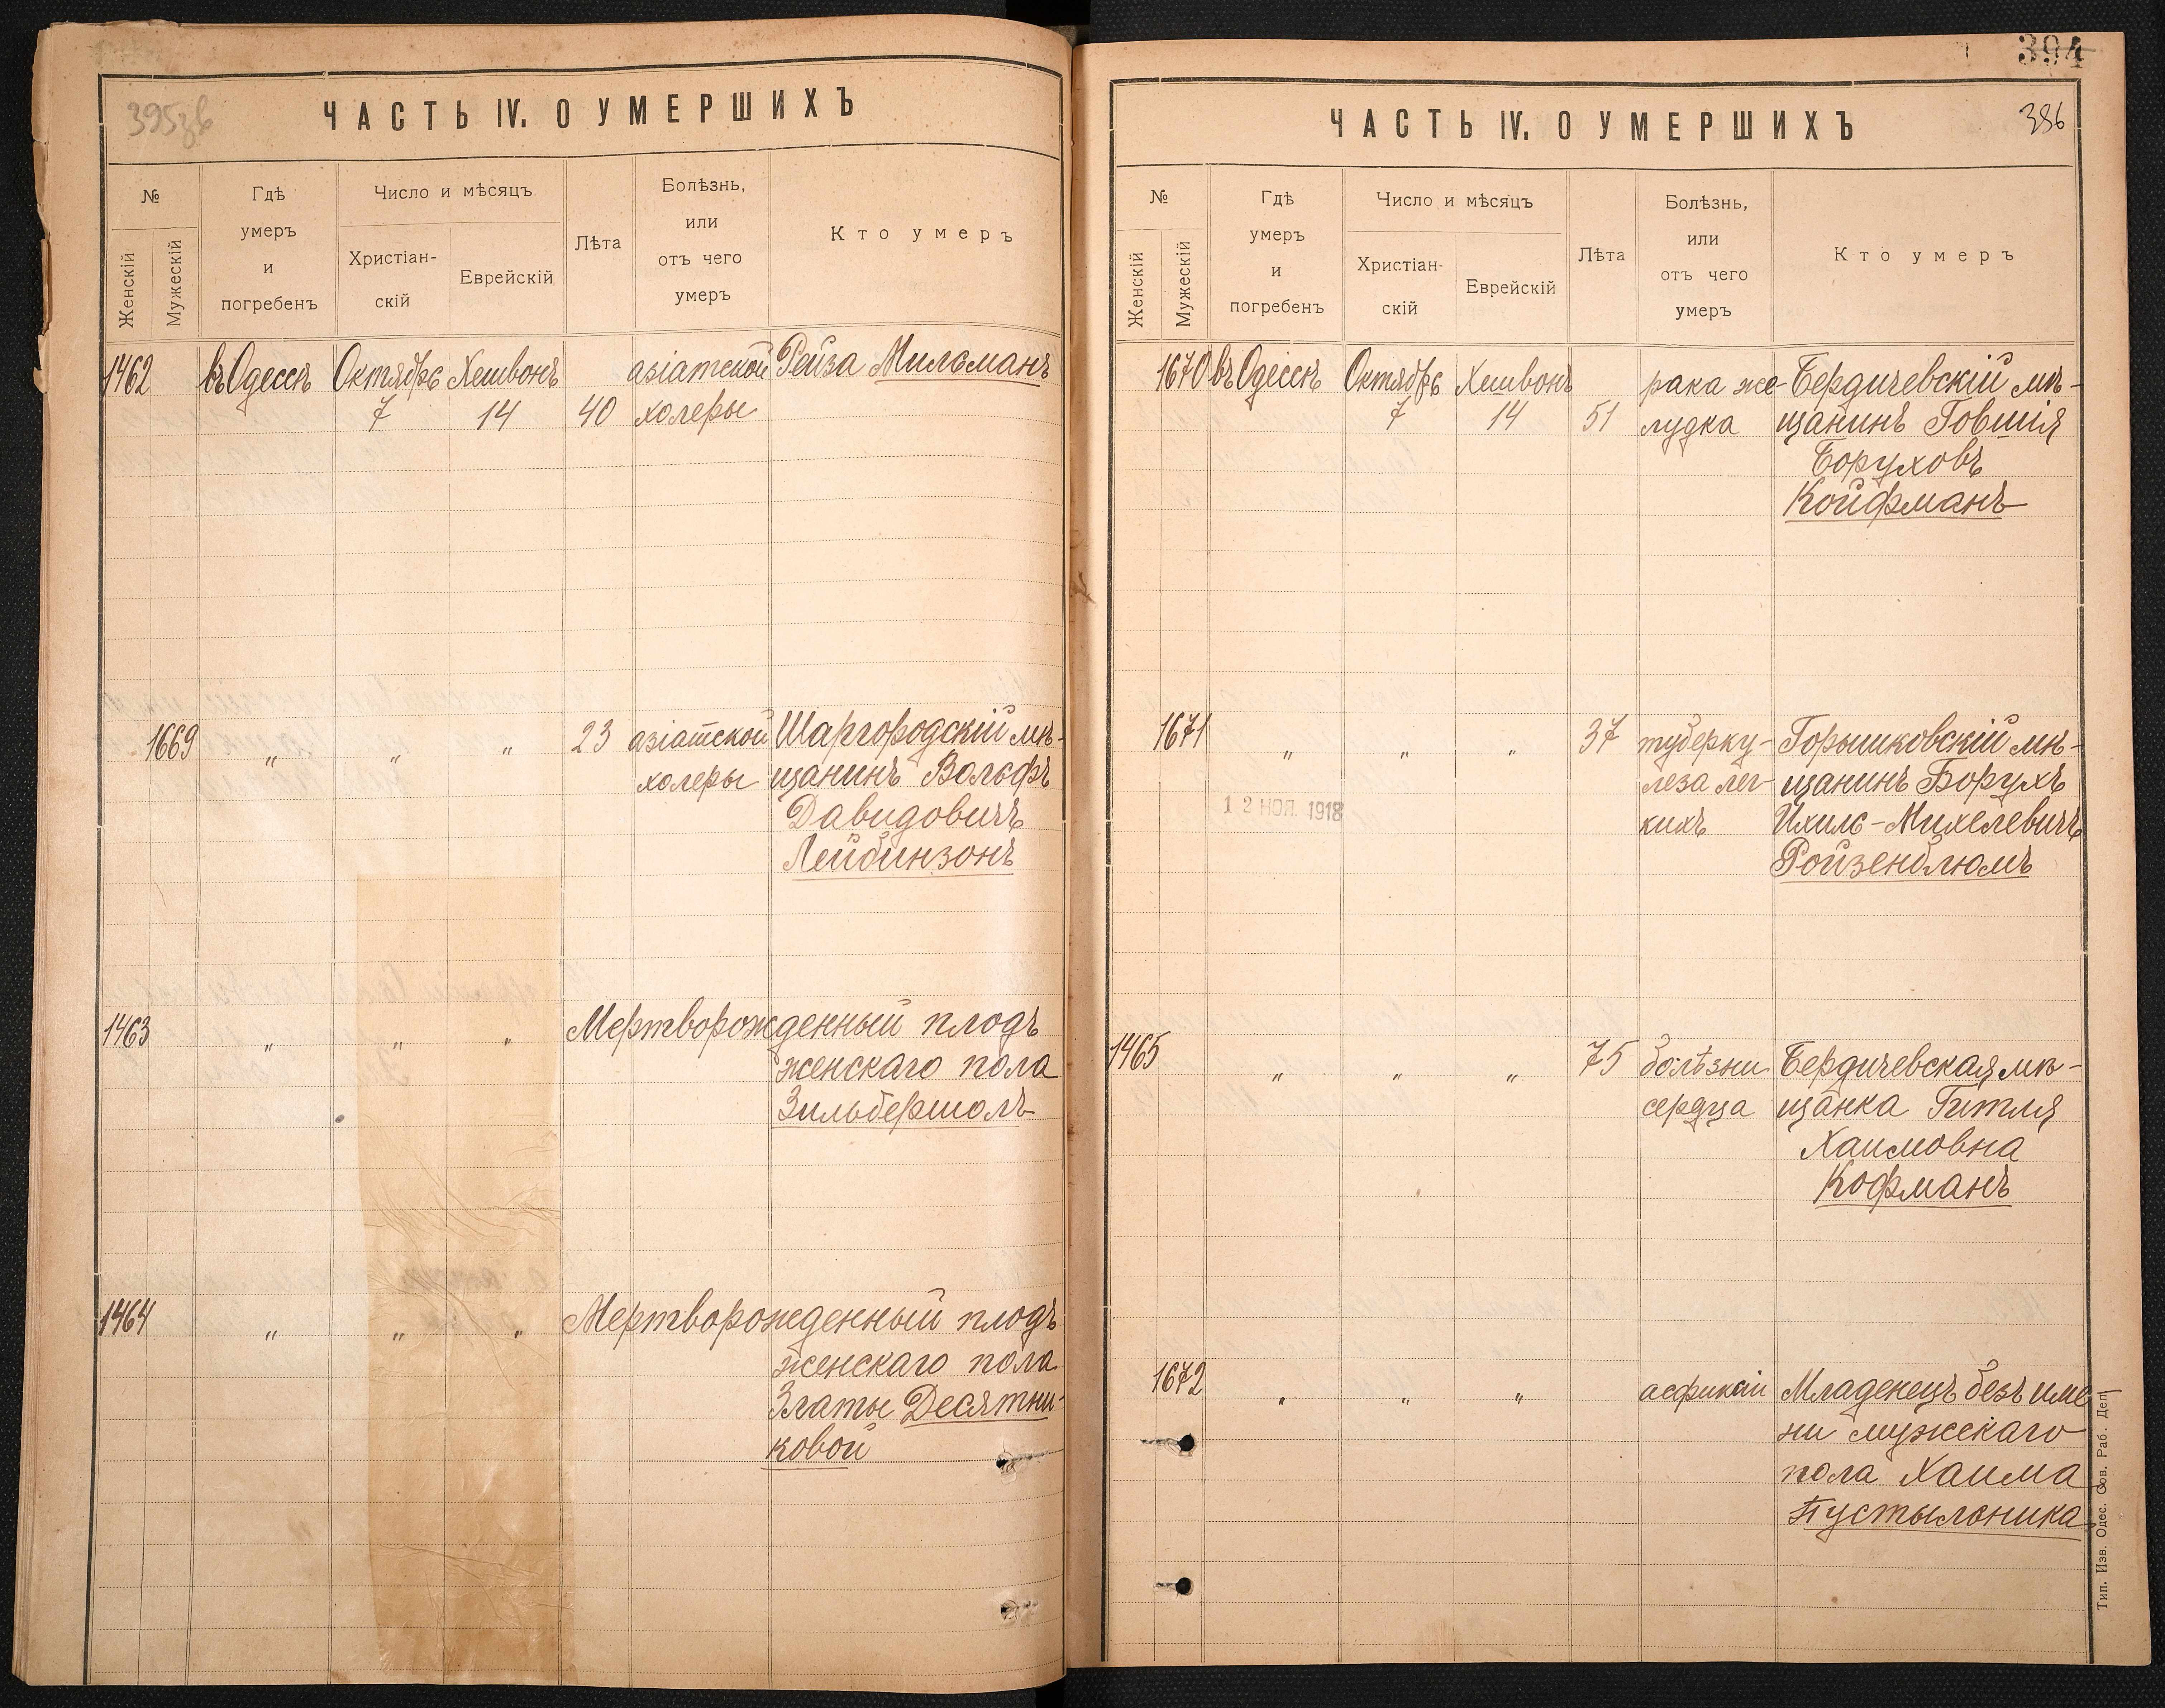 395зв
ЧАСТЬ IV. О УМЕРШИХЪ
№
Женскій
Мужескій
Гдѣ
умеръ
и
погребенъ
Число и мѣсяцъ
Христіан-
скій
Еврейскій
Лѣта
Болѣзнь,
или
отъ чего
умеръ
Кто умеръ
1462 въ Одессѣ Октябрь Хешвонъ азіатской Рейза Мильманъ
7 14 40 холеры
1669 " " " 23 азіатской Шаргородскій мѣ-
холеры щанинъ Вольфъ
Давидовичъ
Лейбинзонъ
1463 " " " Мертворожденный плодъ
женскаго пола
Зильбершолъ
1464 " " " Мертворожденный плодъ
женскаго пола
Златы Десятни-
ковой
394
386
ЧАСТЬ IV. О УМЕРШИХЪ
№
Женскій
Мужескій
Гдѣ
умеръ
и
погребенъ
Число и мѣсяцъ
Христіан-
скій
Еврейскій
Лѣта
Болѣзнь,
или
отъ чего
умеръ
Кто умеръ
1670 въ Одессѣ Октябрь Хешвонъ рака же- Бердичевскій мѣ-
7 14 51 лудка щанинъ Говшія
Боруховъ
Койфманъ
1671 " " " 37 туберку- Горышковскій мѣ-
леза лег- щанинъ Борухъ
12 НОЯ 1918 кихъ Ихиль-Михелевичъ
Ройзенблюмъ
1465 " " " 75 болѣзни Бердичевская мѣ-
сердца щанка Гитля
Хаимовна
Кофманъ
1672 " " " асфиксіи Младенецъ безъ име
ни мужскаго
пола Хаима
Пустыльника
Тип. Изв. Одес. Сов. Раб. Деп.